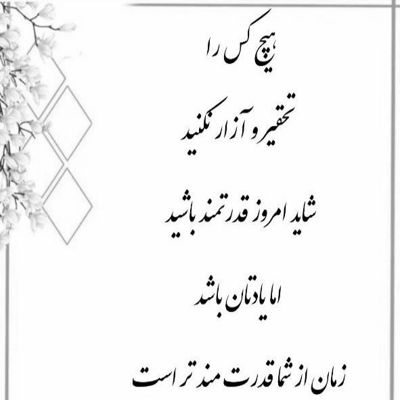 هیچ کس را
تحقیر و آزار نکنید
شاید امروز قدرتمند باشید
اما یادتان باشد
زمان از شما قدرت مند تر است